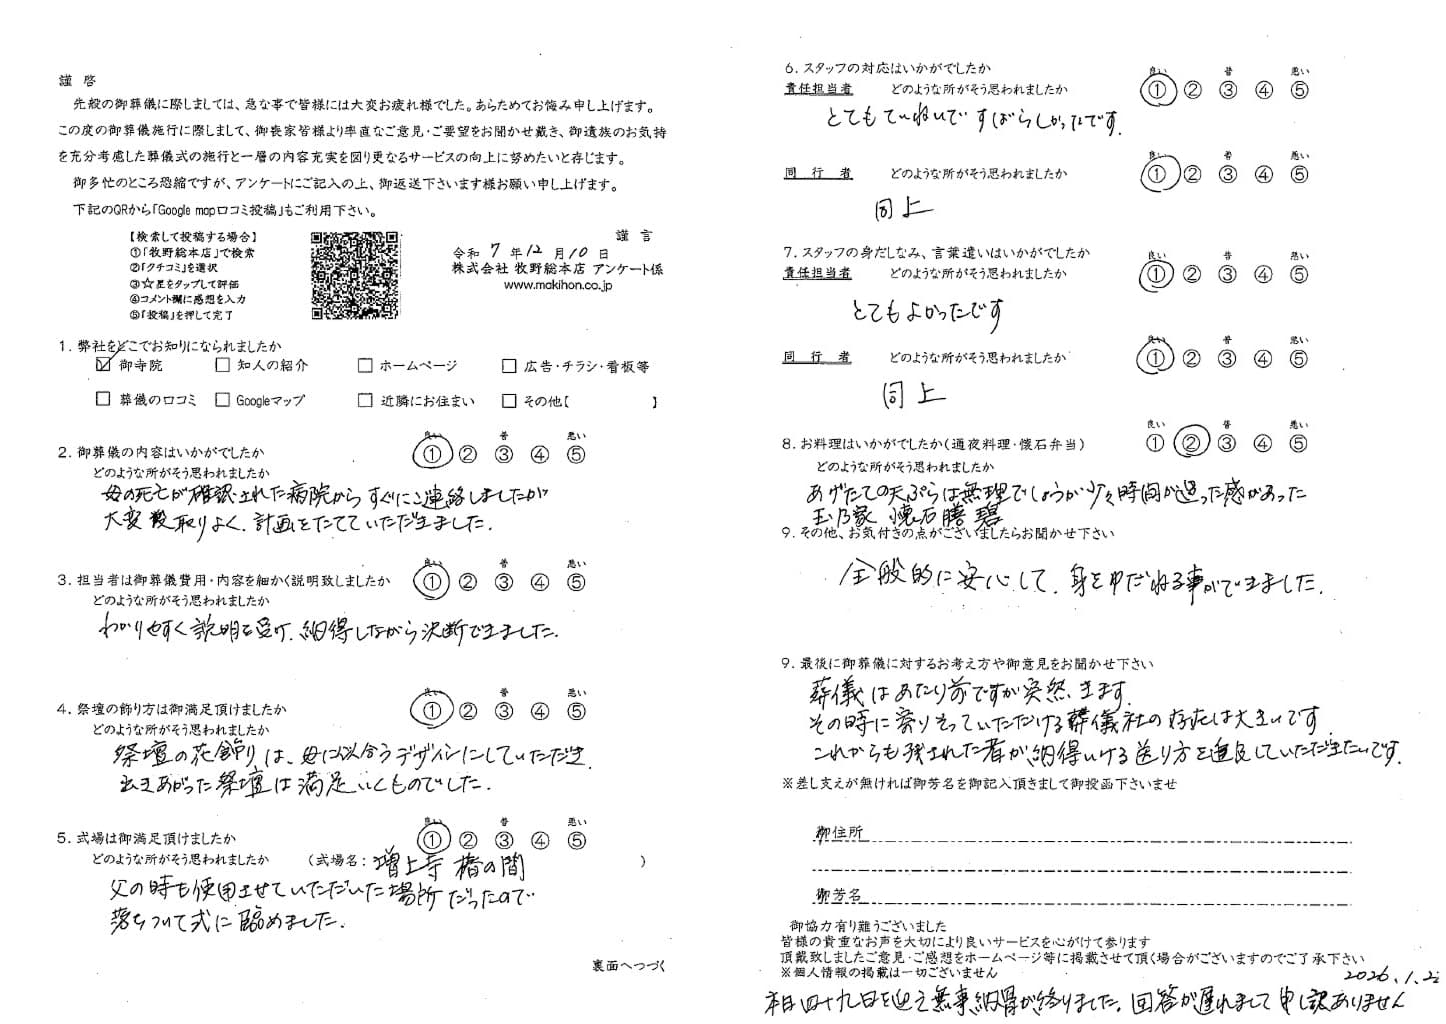 謹啓
先般の御葬儀に際しましては、急な事で皆様には大変お疲れ様でした。あらためてお悔み申し上げます。
この度の御葬儀施行に際しまして、御喪家皆様より率直なご意見・ご要望をお聞かせ戴き、御遺族のお気持
を充分考慮した葬儀式の施行と一層の内容充実を図り更なるサービスの向上に努めたいと存じます。
御多忙のところ恐縮ですが、アンケートにご記入の上、御返送下さいます様お願い申し上げます。
下記のQRから「Google map口コミ投稿」もご利用下さい。
謹言
【検索して投稿する場合】
①「牧野総本店」で検索
②「クチコミ」を選択
③☆星をタップして評価
④コメント欄に感想を入力
⑤「投稿」を押して完了
令和 7 年 12 月 10 日
株式会社 牧野総本店 アンケート係
www.makihon.co.jp
1. 弊社をどこでお知りになられましたか
☑ 御寺院 □ 知人の紹介 □ ホームページ □ 広告・チラシ・看板等
□ 葬儀の口コミ □ Googleマップ □ 近隣にお住まい □ その他【 】
良い 普 悪い
2. 御葬儀の内容はいかがでしたか ① ② ③ ④ ⑤
どのような所がそう思われましたか
母の死亡が確認された病院からすぐにご連絡しましたが
大変段取りよく、計画をたてていただきました.
良い 普 悪い
3. 担当者は御葬儀費用・内容を細かく説明致しましたか ① ② ③ ④ ⑤
どのような所がそう思われましたか
わかりやすく説明を受け、納得しながら決断できました.
良い 普 悪い
4. 祭壇の飾り方は御満足頂けましたか ① ② ③ ④ ⑤
どのような所がそう思われましたか
祭壇の花飾りは、母に似合うデザインにしていただき.
出きあがった祭壇は満足いくものでした.
良い 普 悪い
5. 式場は御満足頂けましたか ① ② ③ ④ ⑤
どのような所がそう思われましたか (式場名: 増上寺 の間 )
父の時も使用させていただいた場所だったので
落ちついて式に臨めました.
裏面へつづく
6. スタッフの対応はいかがでしたか 良い 普 悪い
責任担当者 どのような所がそう思われましたか ① ② ③ ④ ⑤
とてもていねいですばらしかったです.
良い 普 悪い
同行者 どのような所がそう思われましたか ① ② ③ ④ ⑤
同上
7. スタッフの身だしなみ、言葉遣いはいかがでしたか 良い 普 悪い
責任担当者 どのような所がそう思われましたか ① ② ③ ④ ⑤
とてもよかったです
良い 普 悪い
同行者 どのような所がそう思われましたか ① ② ③ ④ ⑤
同上
良い 普 悪い
8. お料理はいかがでしたか(通夜料理・懐石弁当) ① ② ③ ④ ⑤
どのような所がそう思われましたか
あげたての天ぷらは無理でしょうが少々時間が過った感があった
玉乃家 懐石膳 碧
9. その他、お気付きの点がございましたらお聞かせ下さい
全般的に安心して、身をゆだねる事ができました.
9. 最後に御葬儀に対するお考え方や御意見をお聞かせ下さい
葬儀はあたり前ですが突然、きます.
その時に寄りそっていただける葬儀社の存在は大きいです
これからも残された者が納得いける送り方を していただきたいです.
※差し支えが無ければ御芳名を御記入頂きまして御投函下さいませ
御住所
御芳名
御協力有り難うございました
皆様の貴重なお声を大切により良いサービスを心がけて参ります
頂戴致しましたご意見・ご感想をホームページ等に掲載させて頂く場合がございますのでご了承下さい
※個人情報の掲載は一切ございません
2026.1.22
本日四十九日を迎え無事納骨が終りました。回答が遅れまして申し訳ありません